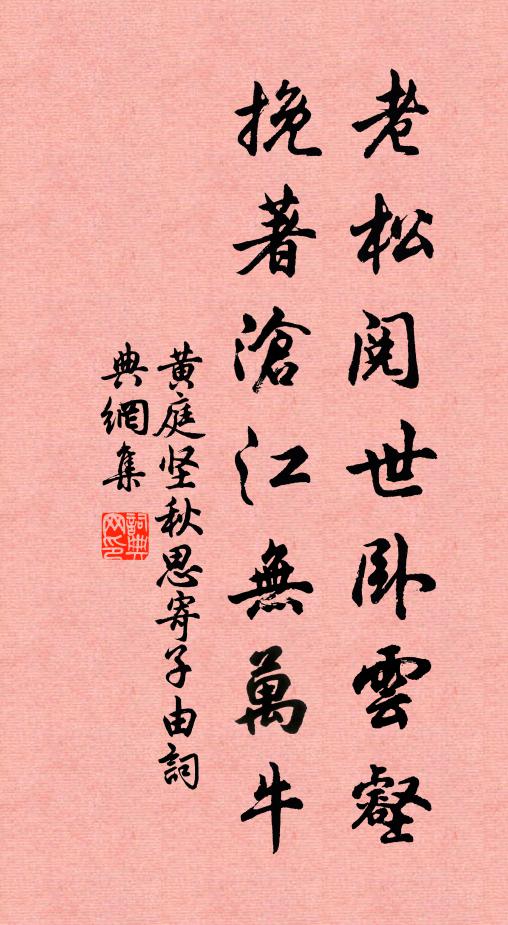 老松閱世卧雲壑
挽著滄江無萬牛
黄庭坚秋思寄子由詞
典網集
詞典
网印